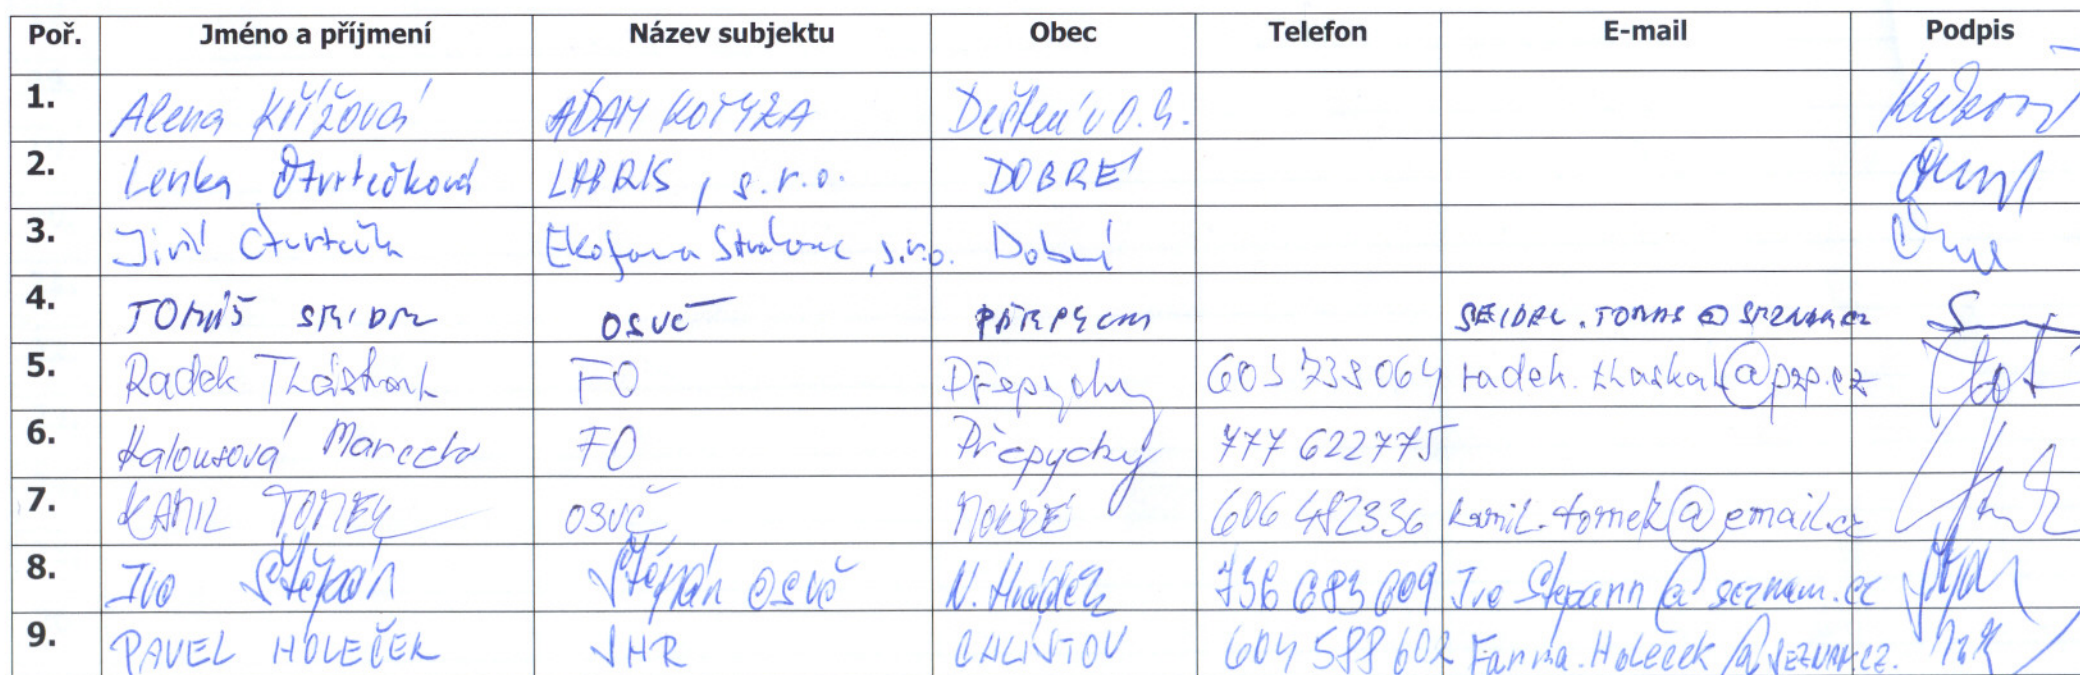 Poř. Jméno a příjmení Název subjektu Obec Telefon E-mail Podpis
1. Alena Křížová ADAM KOTYZA Deštné v O.h.
2. Lenka Čtvrtečková LABRIS, s.r.o. DOBRÉ
3. Jiří Čtvrtečka Ekofarma s.r.o. Dobré
4. TOMÁŠ SEIDEL OSVČ PŘEPYCHY SEIDEL.TOMAS@SEZNAM.CZ
5. Radek FO Přepychy radek.thaskal@pzp.cz
6. Kalousová Marcela FO Přepychy 777 622775
7. KAMIL TOMEK OSVČ MOKRÉ 606 482336 kamil.tomek@email.cz
8. Ivo Štěpán Štěpán OSVČ N. Hrádek 736 683 609 @seznam.cz
9. PAVEL HOLEČEK SHR CHLÍSTOV 604 588 602 Farma.Holecek@SEZNAM.CZ.